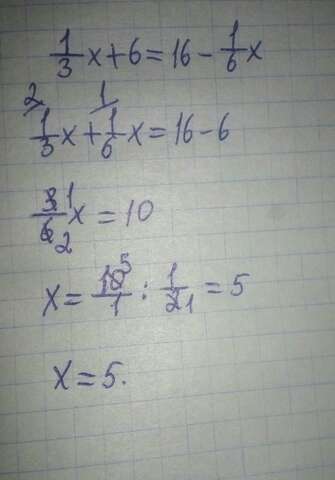 1/3 x + 6 = 16 - 1/6 x
2 1
1/3 x + 1/6 x = 16 - 6
3 1/6 2 x = 10
x = 10 5/1 : 1/2 1 = 5
x = 5.